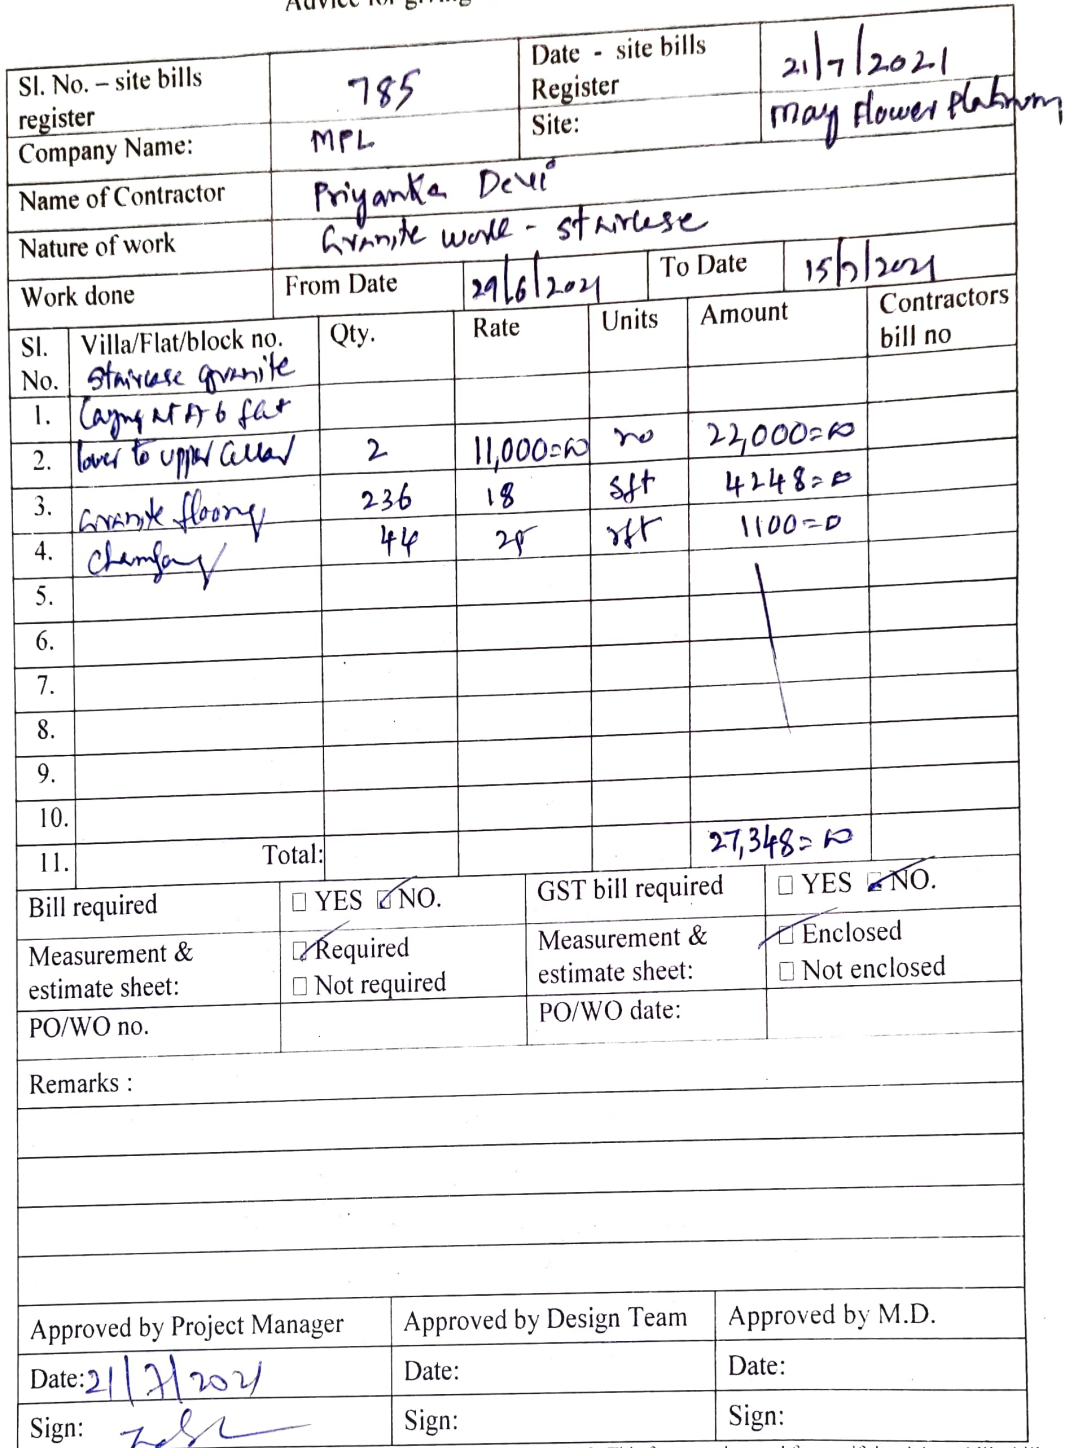 Sl. No. – site bills register 785 Date - site bills Register 21/7/2021
Company Name: MPL Site: May Flower Platinum
Name of Contractor Priyanka Devi
Nature of work Granite work - staircase
Work done From Date 29/6/2021 To Date 15/7/2021
Sl. No. Villa/Flat/block no. Qty. Rate Units Amount Contractors bill no
staircase granite
1. laying at A 6 flat
2. lower to upper cellar 2 11,000=00 no 22,000=00
3. Granite flooring 236 18 sft 4248=0
4. Chamfering 44 25 rft 1100=0
5.
6.
7.
8.
9.
10.
11. Total: 27,348=00
Bill required □ YES ☑ NO. GST bill required □ YES ☑ NO.
Measurement & estimate sheet: ☑ Required □ Not required Measurement & estimate sheet: ☑ Enclosed □ Not enclosed
PO/WO no. PO/WO date:
Remarks :
Approved by Project Manager Approved by Design Team Approved by M.D.
Date: 21/7/2021 Date: Date:
Sign: Sign: Sign: